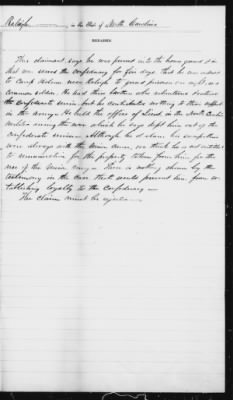 Raleigh, in the State of North Carolina
REMARKS.
This claimant says he was forced into the home guard &
did serve the confederacy for five days that he was ordered
to Camp Holmes near Raleigh to guard prisoners one night, as a
common soldier. He had three brothers who volunteered in the
the Confederate service but he contributed nothing to their
in the army. He held the office of in the North Carolina
Militia during the war which he says kept him out of the
Confederate service. Although he claims his sympathies
were always with the Union cause, we think he is not entitled
to remuneration for the property taken from him for the
use of the Union army. There is nothing shown by the
testimony in the case that would prevent him from
establishing loyalty to the Confederacy
His claim must be rejected